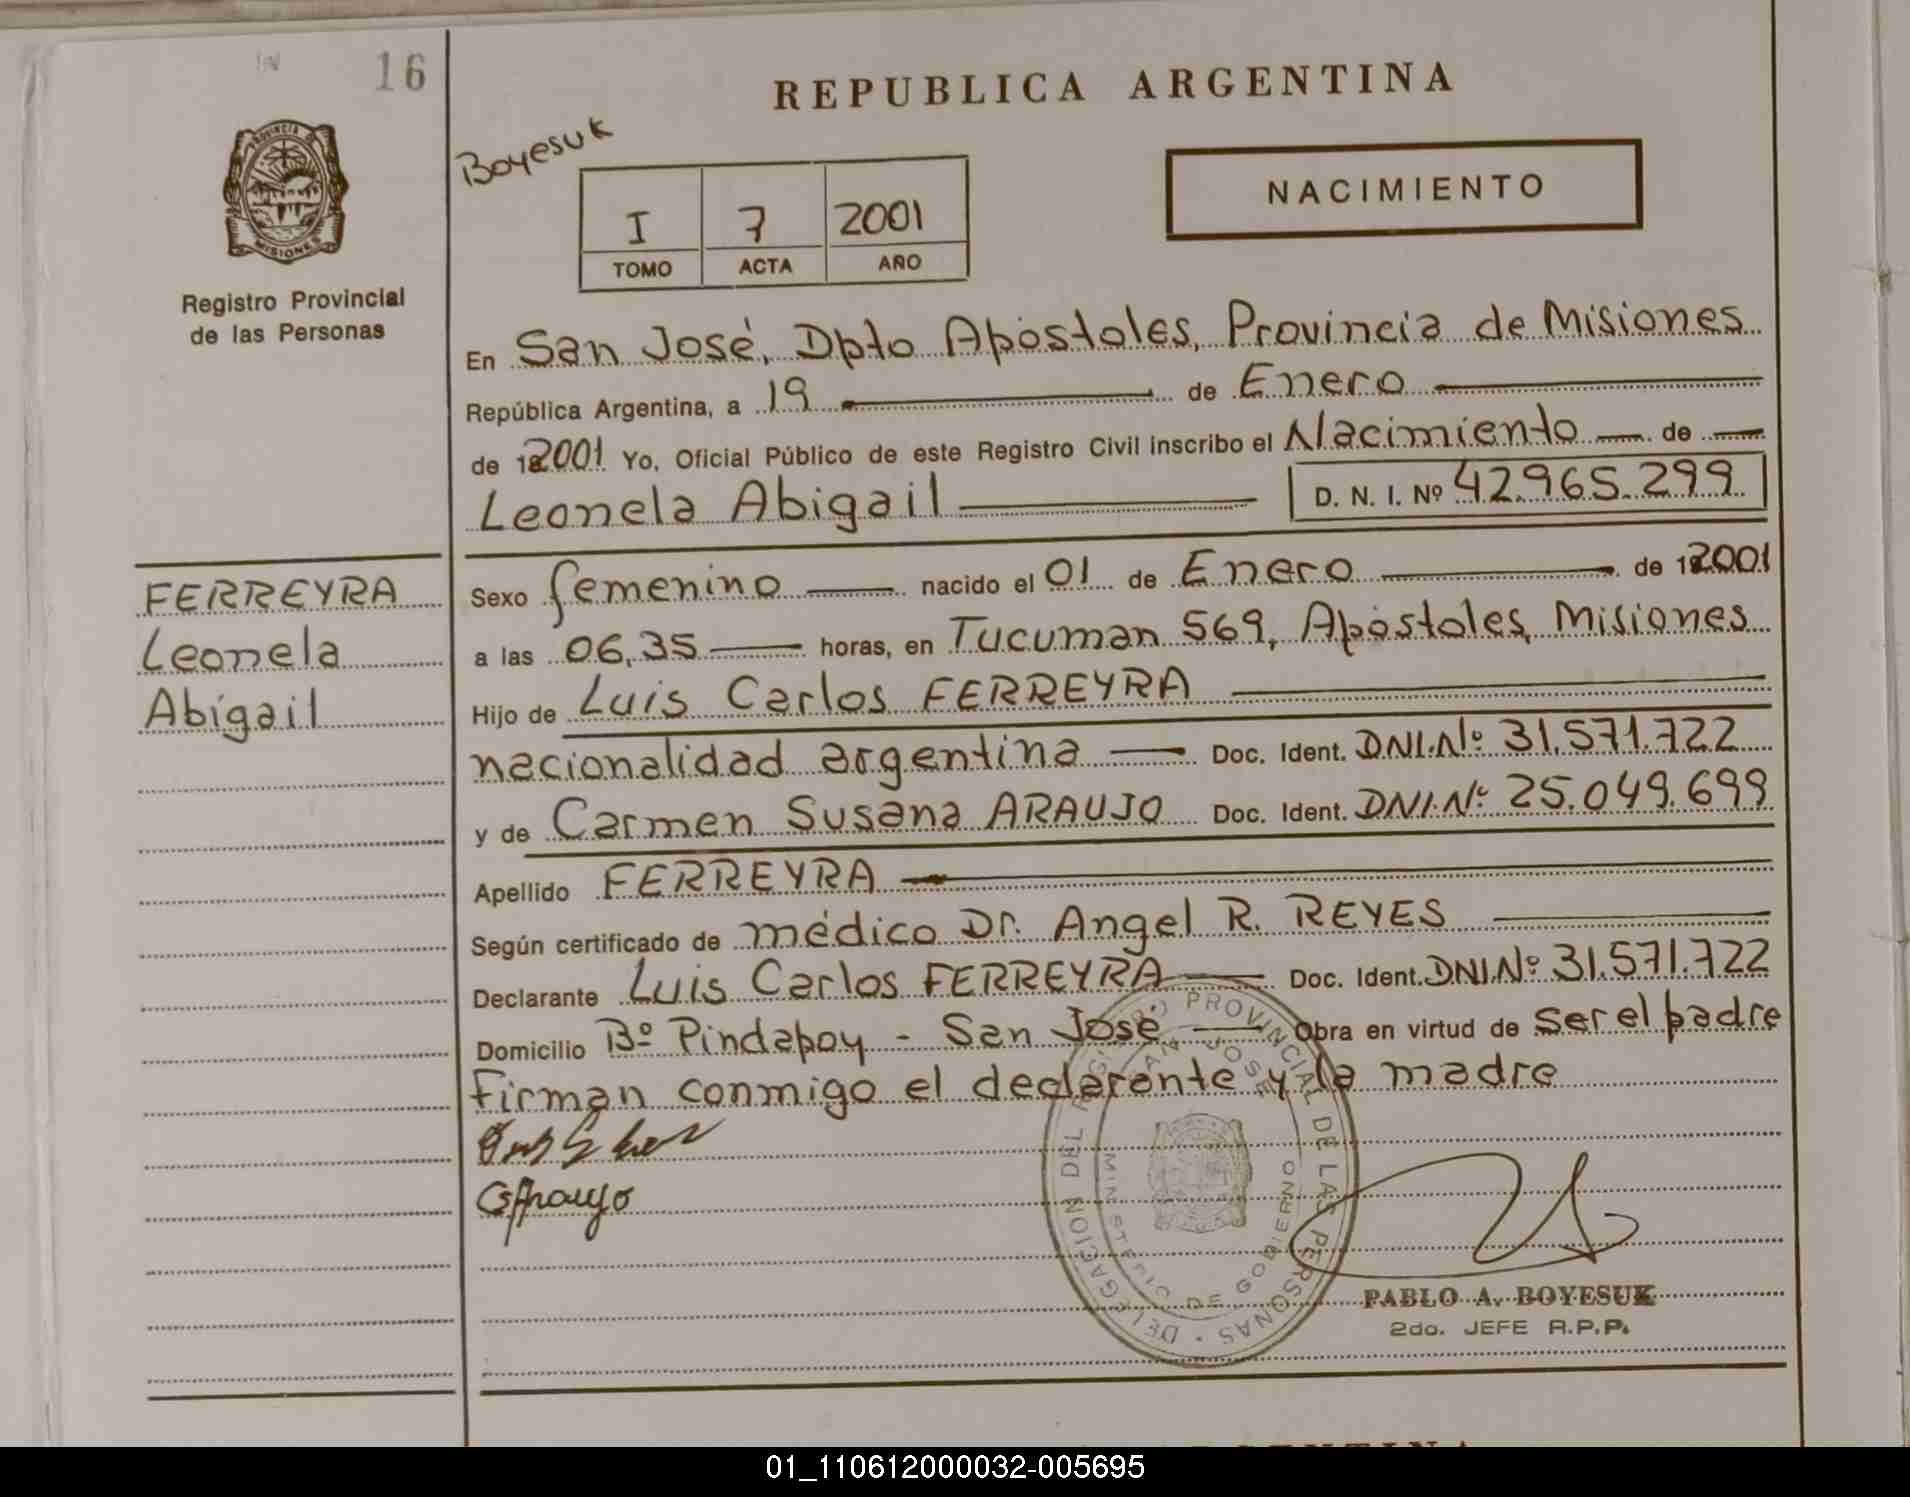 16
REPUBLICA ARGENTINA
Boyesuk
NACIMIENTO
I 7 2001
TOMO ACTA AÑO
PROVINCIA DE MISIONES
Registro Provincial
de las Personas
En San José, Dpto Apóstoles, Provincia de Misiones
República Argentina, a 19 de Enero
de 2001 Yo, Oficial Público de este Registro Civil inscribo el Nacimiento de
Leonela Abigail D. N. I. Nº 42.965.299
FERREYRA
Leonela
Abigail
Sexo femenino nacido el 01 de Enero de 2001
a las 06,35 horas, en Tucuman 569, Apóstoles, Misiones
Hijo de Luis Carlos FERREYRA
nacionalidad argentina Doc. Ident. DNI.Nº 31.571.722
y de Carmen Susana ARAUJO Doc. Ident. DNI.Nº 25.049.699
Apellido FERREYRA
Según certificado de médico Dr. Angel R. REYES
Declarante Luis Carlos FERREYRA Doc. Ident. DNI.Nº 31.571.722
Domicilio Bº Pindapoy - San José Obra en virtud de ser el padre
Firman conmigo el declarante y la madre
CSAraujo
DELEGACION DEL REGISTRO PROVINCIAL DE LAS PERSONAS
SAN JOSE
MINISTERIO DE GOBIERNO
PABLO A. BOYESUK
2do. JEFE R.P.P.
01_110612000032-005695